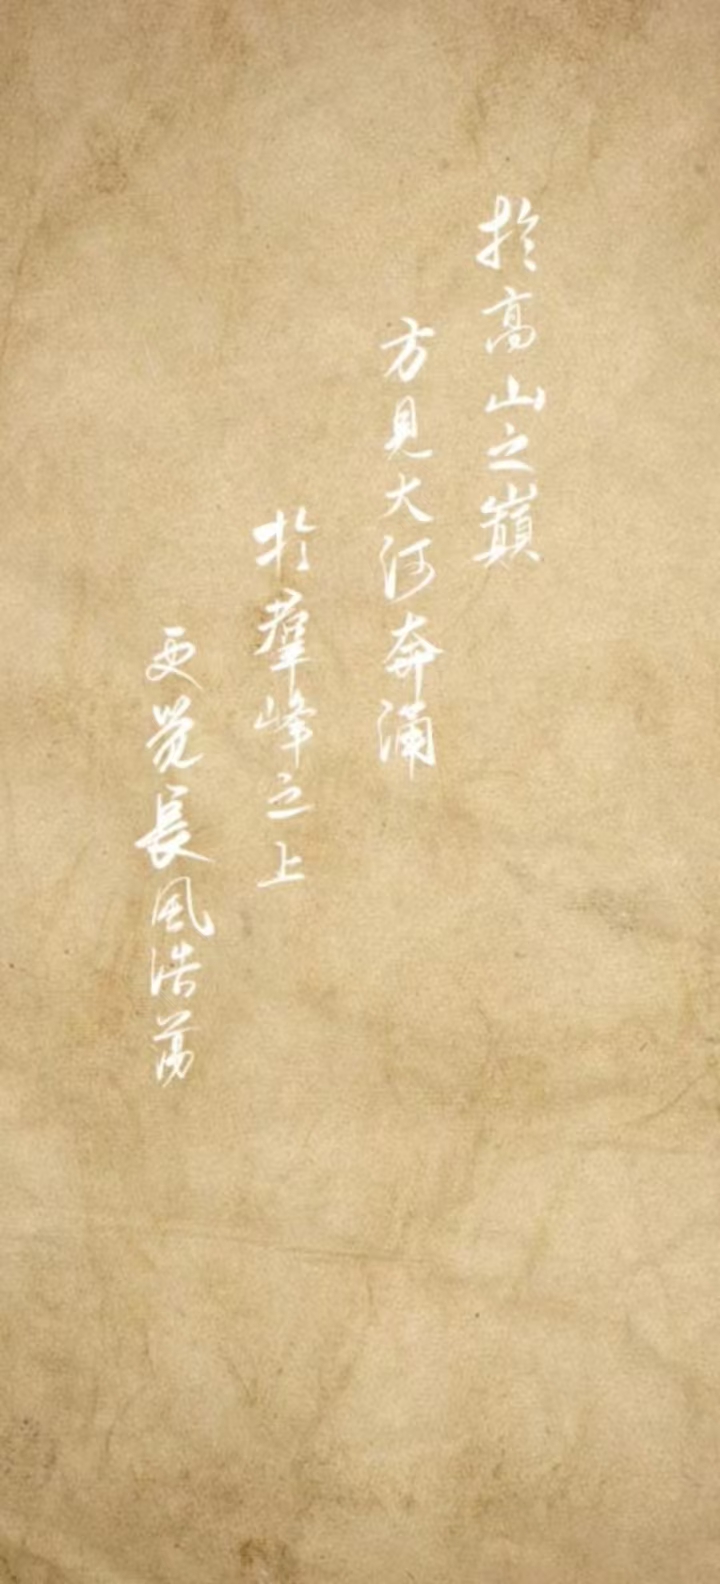 於高山之巔
方見大河奔涌
於羣峰之上
更覺長風浩蕩